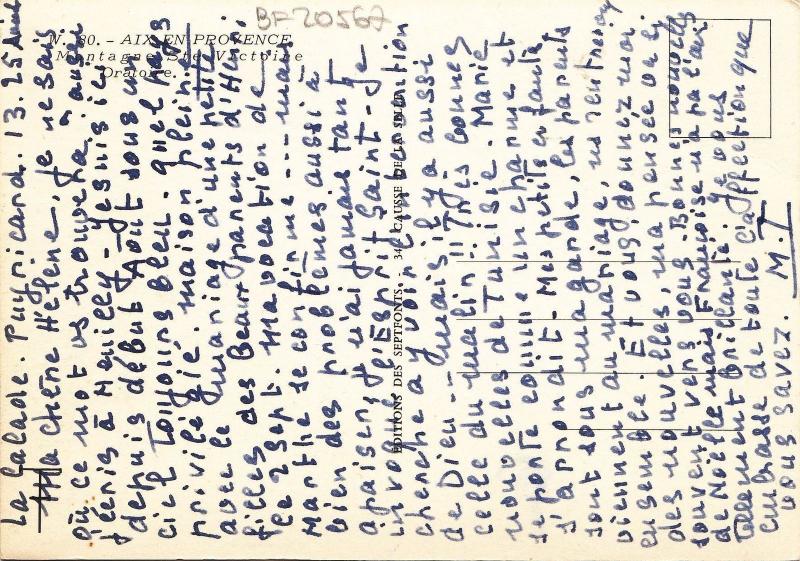 BF 20567
N. 80. - AIX-EN-PROVENCE
Montagne Ste Victoire
Oratoire.
EDITIONS DES SEPTFONTS. - 34 CAUSSE DE LA SELLE
La Calade. Puyricard. 13. 25 Août
Ma chère Hélène, je ne sais
où ce mot vs trouvera, aussi
j'écris à Neuilly - Je suis ici
depuis début Août sous un
ciel toujours bleu. quel pays
privilégié. maison pleine
avec le mariage d'une petite
fille des Beaux parents d'Henri,
le 2 Sept. Ma vocation de
Marthe se confirme --- mais
bien des problèmes aussi à
apaiser, je n'ai jamais tant
invoqué l'Esprit Saint - Je
cherche à y voir l'intervention
de Dieu -- mais il y a aussi
celle du malin !! Très bonnes
nouvelles de Tunisie. Marie
se porte comme un charme et
s'arrondit - Mes petits enfants
sont sous ma garde, les parents
viennent au mariage, vs rentrerons
ensemble. Et vous, donnez moi
des nouvelles, ma pensée va si
souvent vers vous. Bonnes nouvelles
de Noëlle mais Françoise n'a pas l'air
tellement brillante. Je vous
embrasse de toute l'affection que
vous savez. M. T